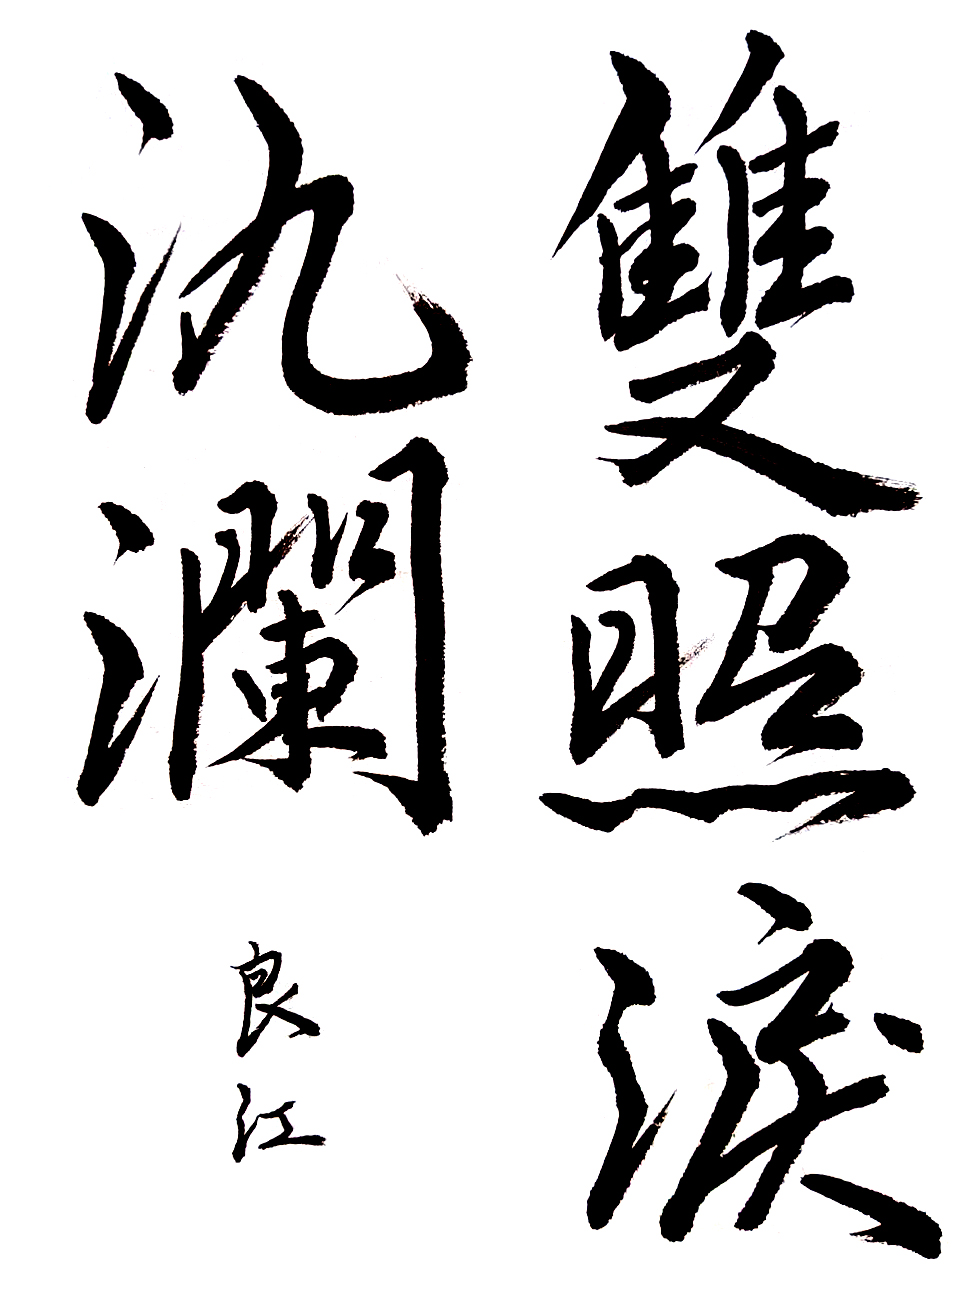 雙照淚
汍瀾
良江